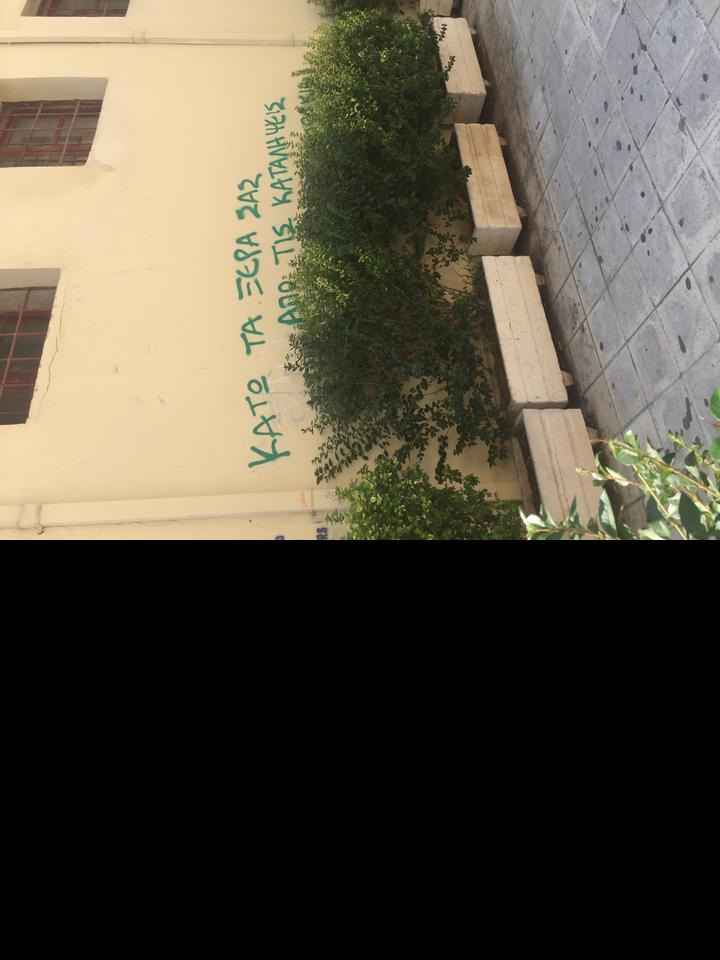 ΚΑΤΩ ΤΑ ΞΕΡΑ ΣΑΣ
ΑΠΟ ΤΙΣ ΚΑΤΑΛΗΨΕΙΣ